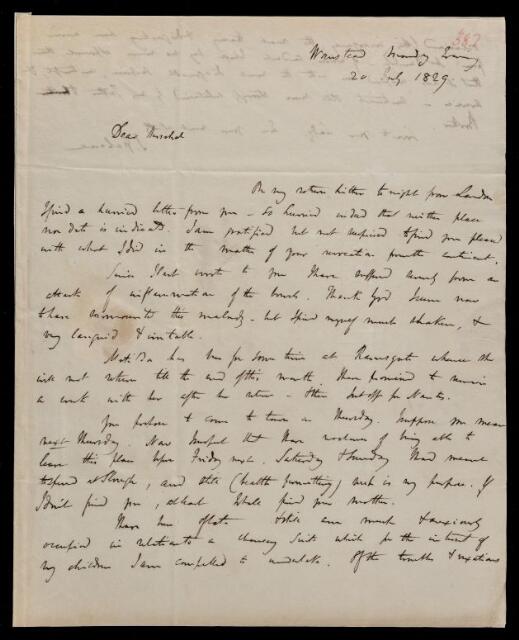 382
Wanstead Monday Evening
20 July 1829
Dear Herschel
On my return hither to night from London
I find a hurried letter from you – so hurried indeed that neither place
nor date is indicated. I am gratified but not surprised to find you pleased
with what I did in the matter of your
Since I last wrote to you I have suffered severely from an
attack of inflammation of the bowels. Thank God I seem now
to have surmounted this malady – but I find myself much shaken, &
very languid & irritable.
has been for some time at Ramsgate whence she
will not return till the end of this month. I have promised to remain
a week with her after her return – then set off for
You purpose to come to town on Thursday. I suppose you mean
next Thursday. Now I
leave this place before Friday next. Saturday & Sunday I had meant
to spend at Slough, and still (health permitting) such is my purpose. If
I don't find you, at least I shall find your mother.
I have been of late & still am much & anxiously
occupied in relation to a chancery suit which for the interest of
my children I am compelled to undertake. Of the troubles & vexations